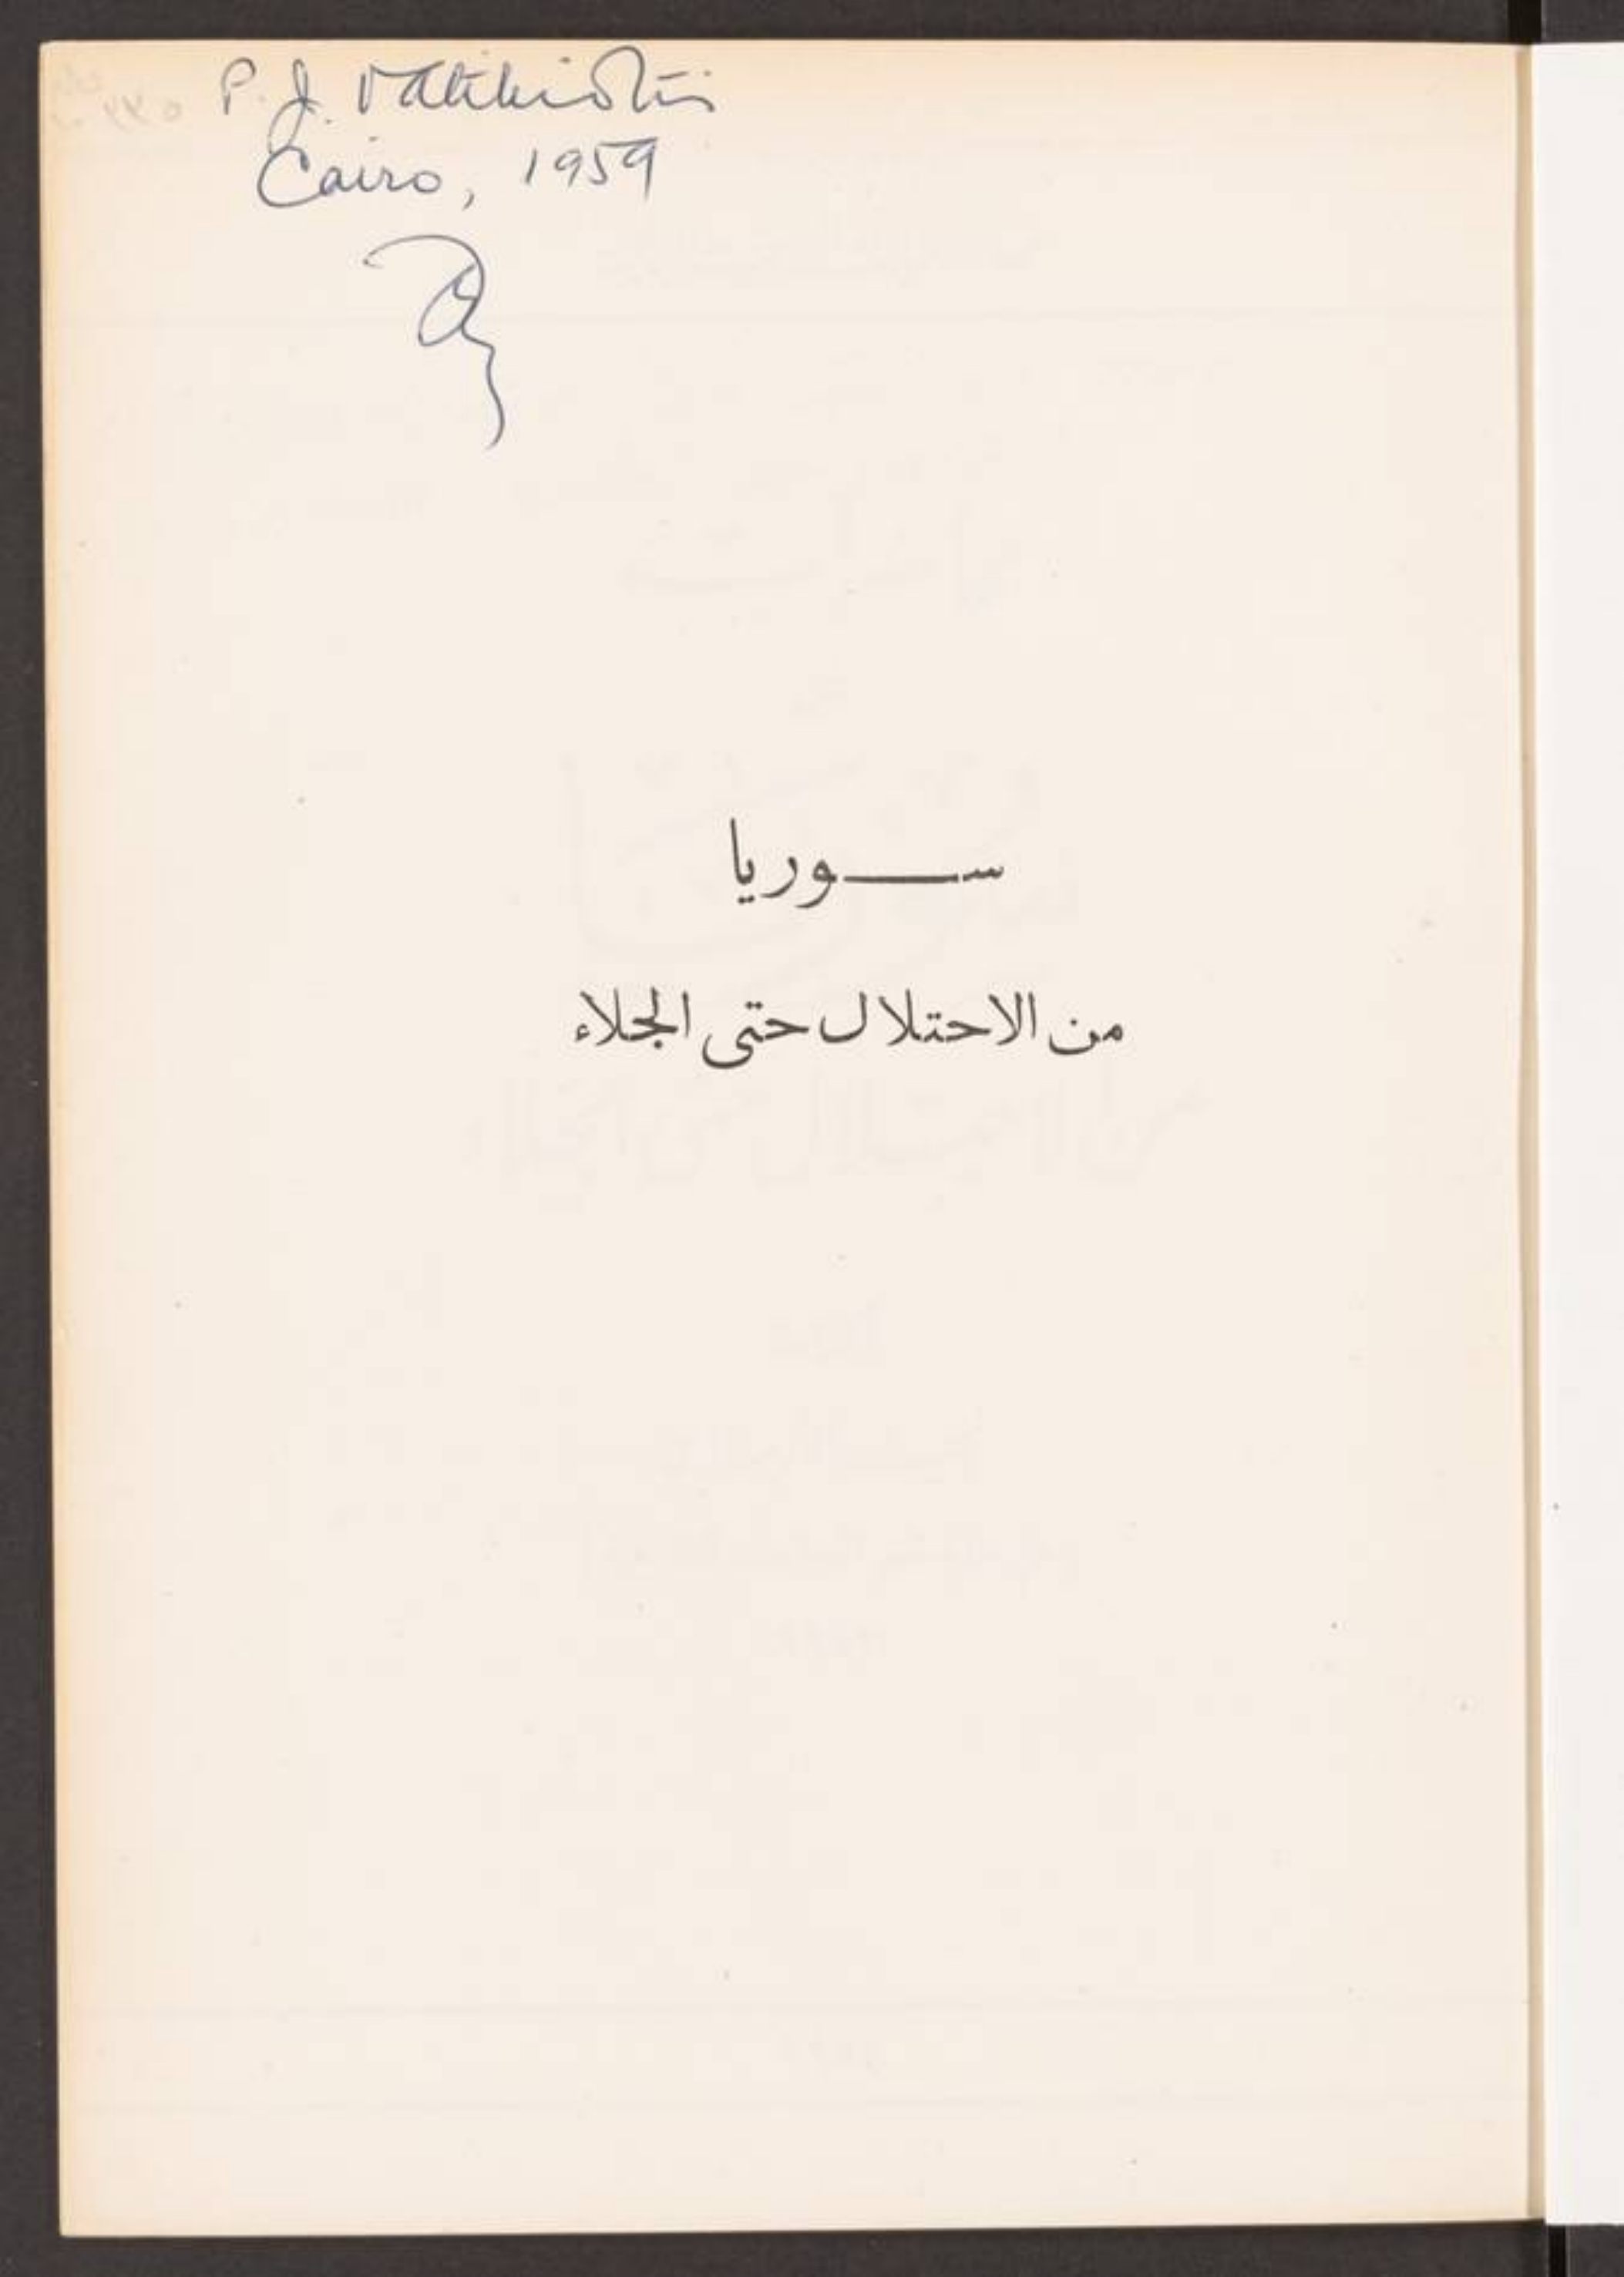 P. J. Vatikiotis
Cairo, 1959
سوريا
من الاحتلال حتى الجلاء